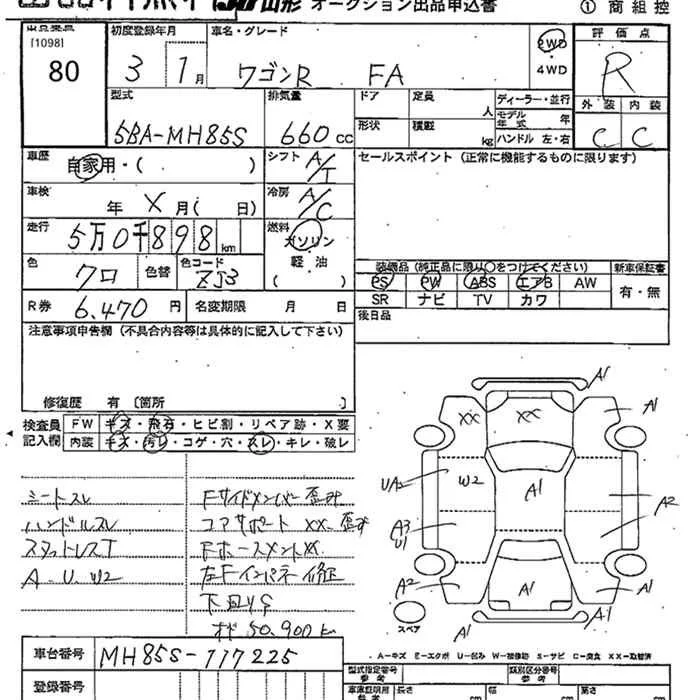 JU山形 オークション出品申込書
① 商組控
[1098]
80
初度登録年月
3 1月
車名・グレード
ワゴンR FA
2WD
・
4WD
評価点
R
外装 内装
C C
型式
5BA-MH85S
排気量
660cc
ドア
定員 人
形状
積載 kg
ディーラー・並行
モデル年式 年
ハンドル 左・右
車歴
自家用・( )
シフト
A/T
セールスポイント (正常に機能するものに限ります)
車検
年 X 月( 日)
冷房
A/C
走行
5万0千898km
燃料
ガソリン
軽油
( )
色
クロ
色替
色コード
ZJ3
装備品 (純正品に限り○をつけてください)
PS PW ABS エアB AW
SR ナビ TV カワ
新車保証書
有・無
R券
6,470円
名変期限 月 日
後日品
注意事項申告欄 (不具合内容等は具体的に記入して下さい)
修復歴 有 〔箇所 〕
検査員
記入欄
FW キズ・飛石・ヒビ割・リペア跡・X要
内装 キズ・汚レ・コゲ・穴・スレ・キレ・破レ
シートスレ
ハンドルスレ
スタットレスT
A.U.W2
Fサイドメンバー歪み
コアサポート XX.歪み
FホースメントXX
左Fインパネ修正
下回りS
オド50,900km
A1
XX
XX
A1
UA2
W2
A1
A2
A3
U1
A2
A1
A1
A1
スペア
A-キズ E-エクボ U-凹み W-補修跡 S-サビ C-腐食 XX-取替済
車台番号
MH85S-117225
登録番号
型式指定番号
参考
類別区分番号
参考
車庫証明用
参考
長さ cm
幅 cm
高さ cm